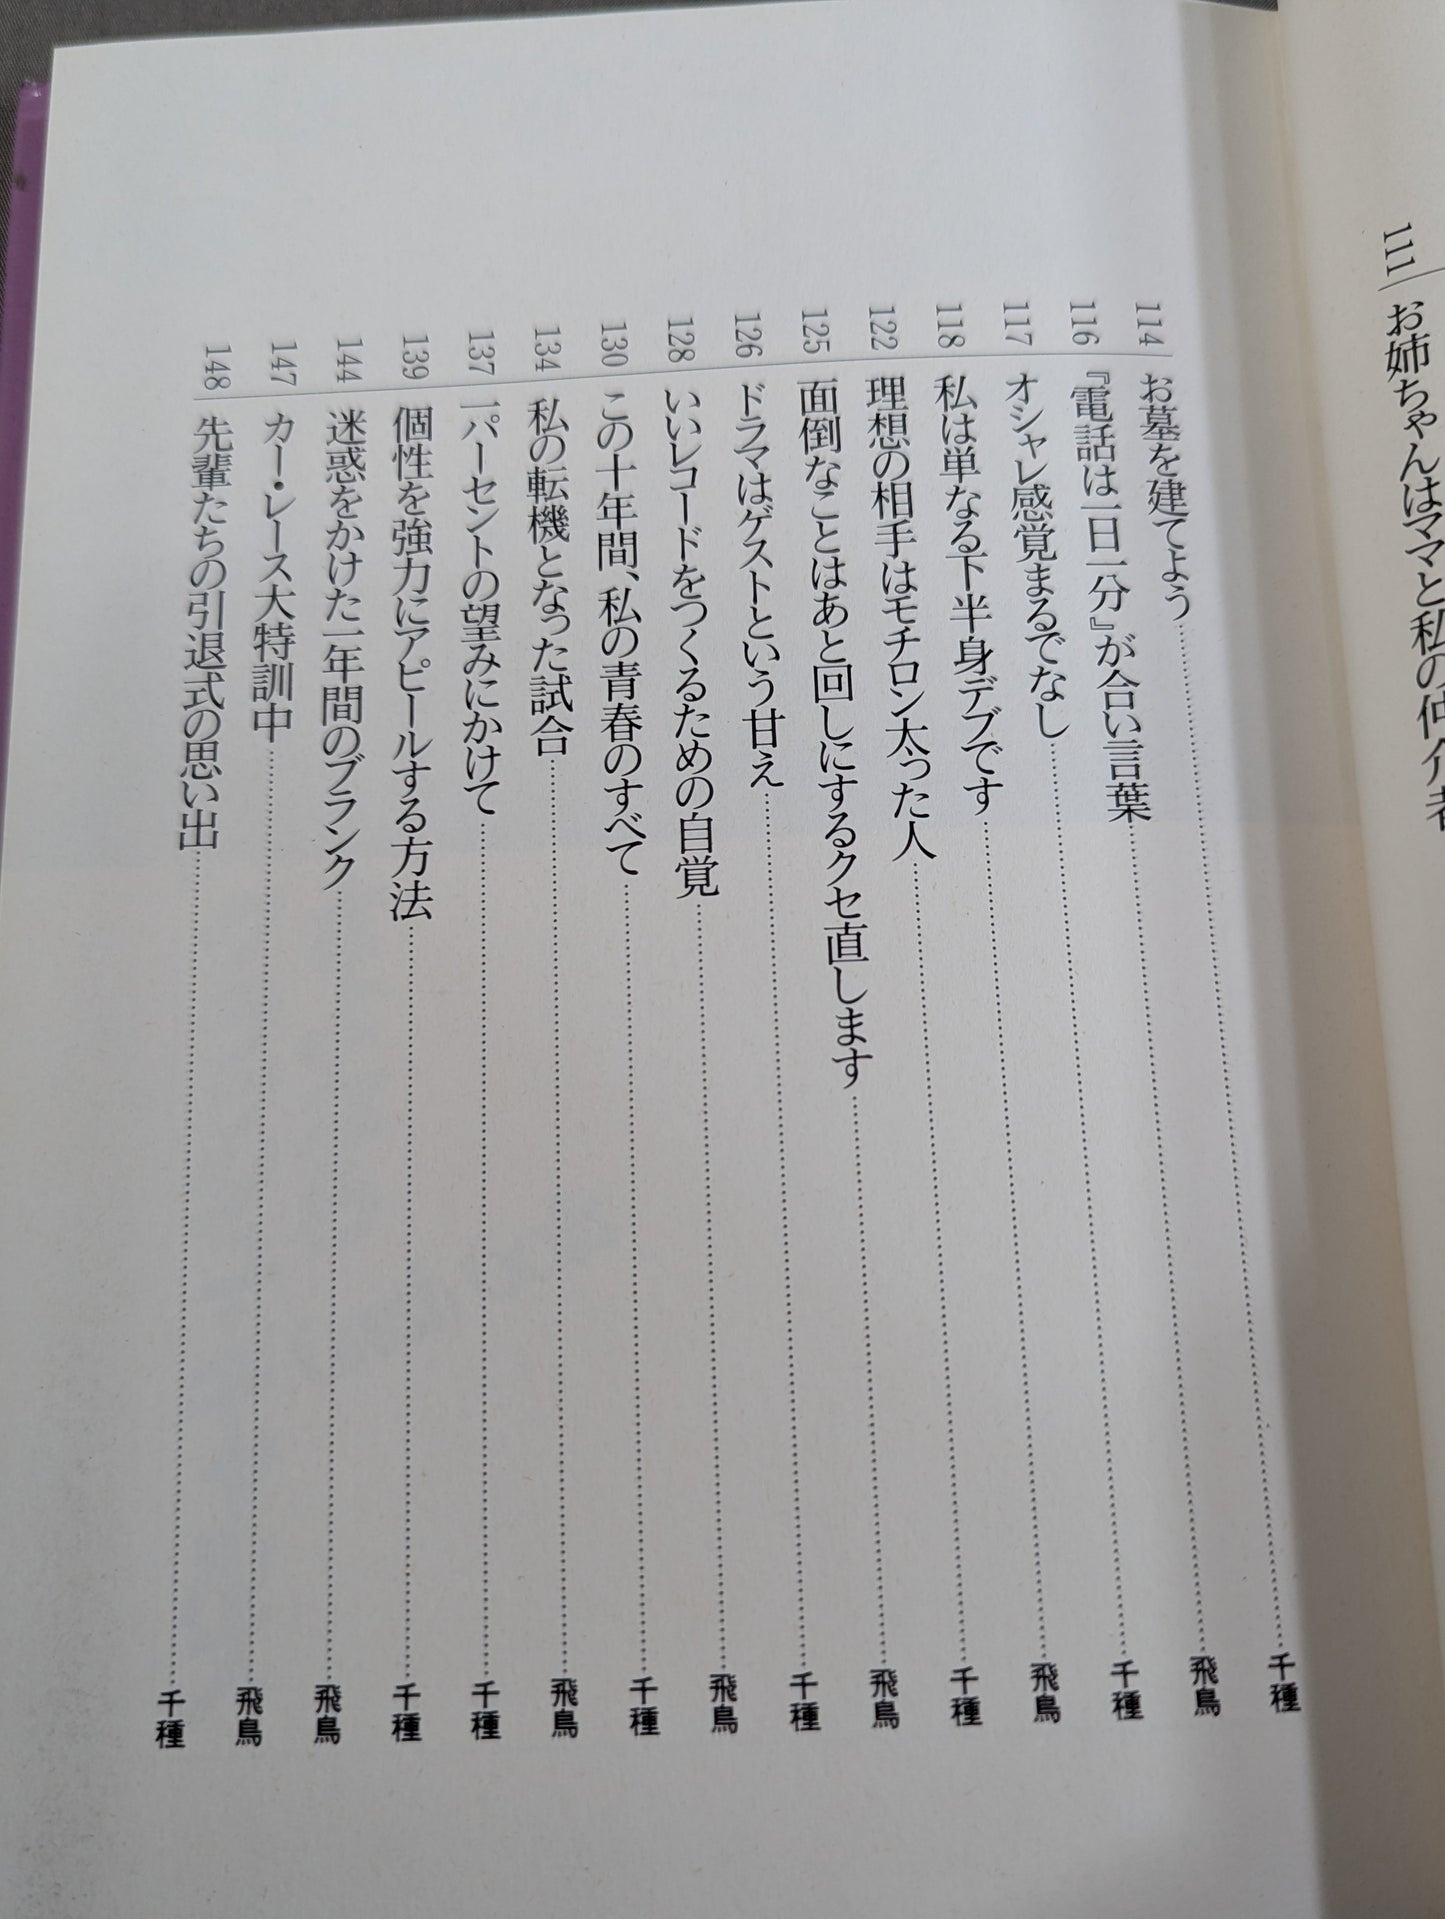 111 お姉ちゃんはママと私の仲介者
114 お墓を建てよう 千種
116 『電話は一日一分』が合い言葉 飛鳥
117 オシャレ感覚まるでなし 千種
118 私は単なる下半身デブです 飛鳥
122 理想の相手はモチロン太った人 千種
125 面倒なことはあと回しにするクセ直します 飛鳥
126 ドラマはゲストという甘え 千種
128 いいレコードをつくるための自覚 飛鳥
130 この十年間、私の青春のすべて 千種
134 私の転機となった試合 飛鳥
137 一パーセントの望みにかけて 千種
139 個性を強力にアピールする方法 千種
144 迷惑をかけた一年間のブランク 飛鳥
147 カー・レース大特訓中 飛鳥
148 先輩たちの引退式の思い出 千種